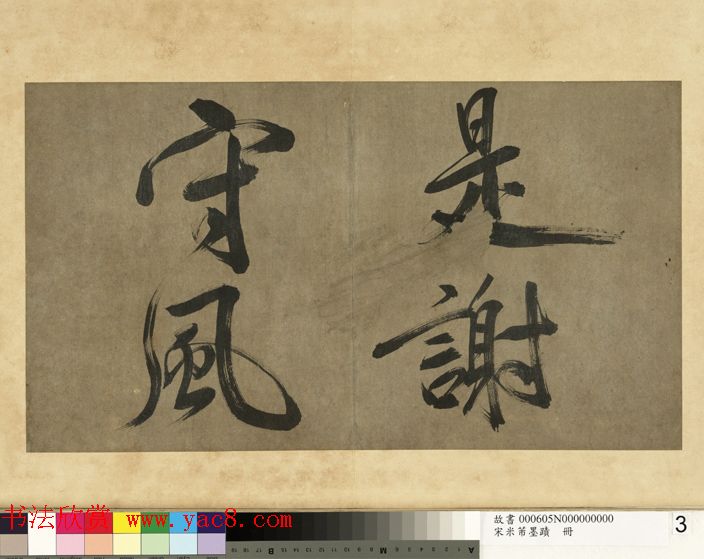 是謝
守風
书法欣赏 www.yac8.com
故書 000605N000000000
宋米芾墨蹟 冊
3